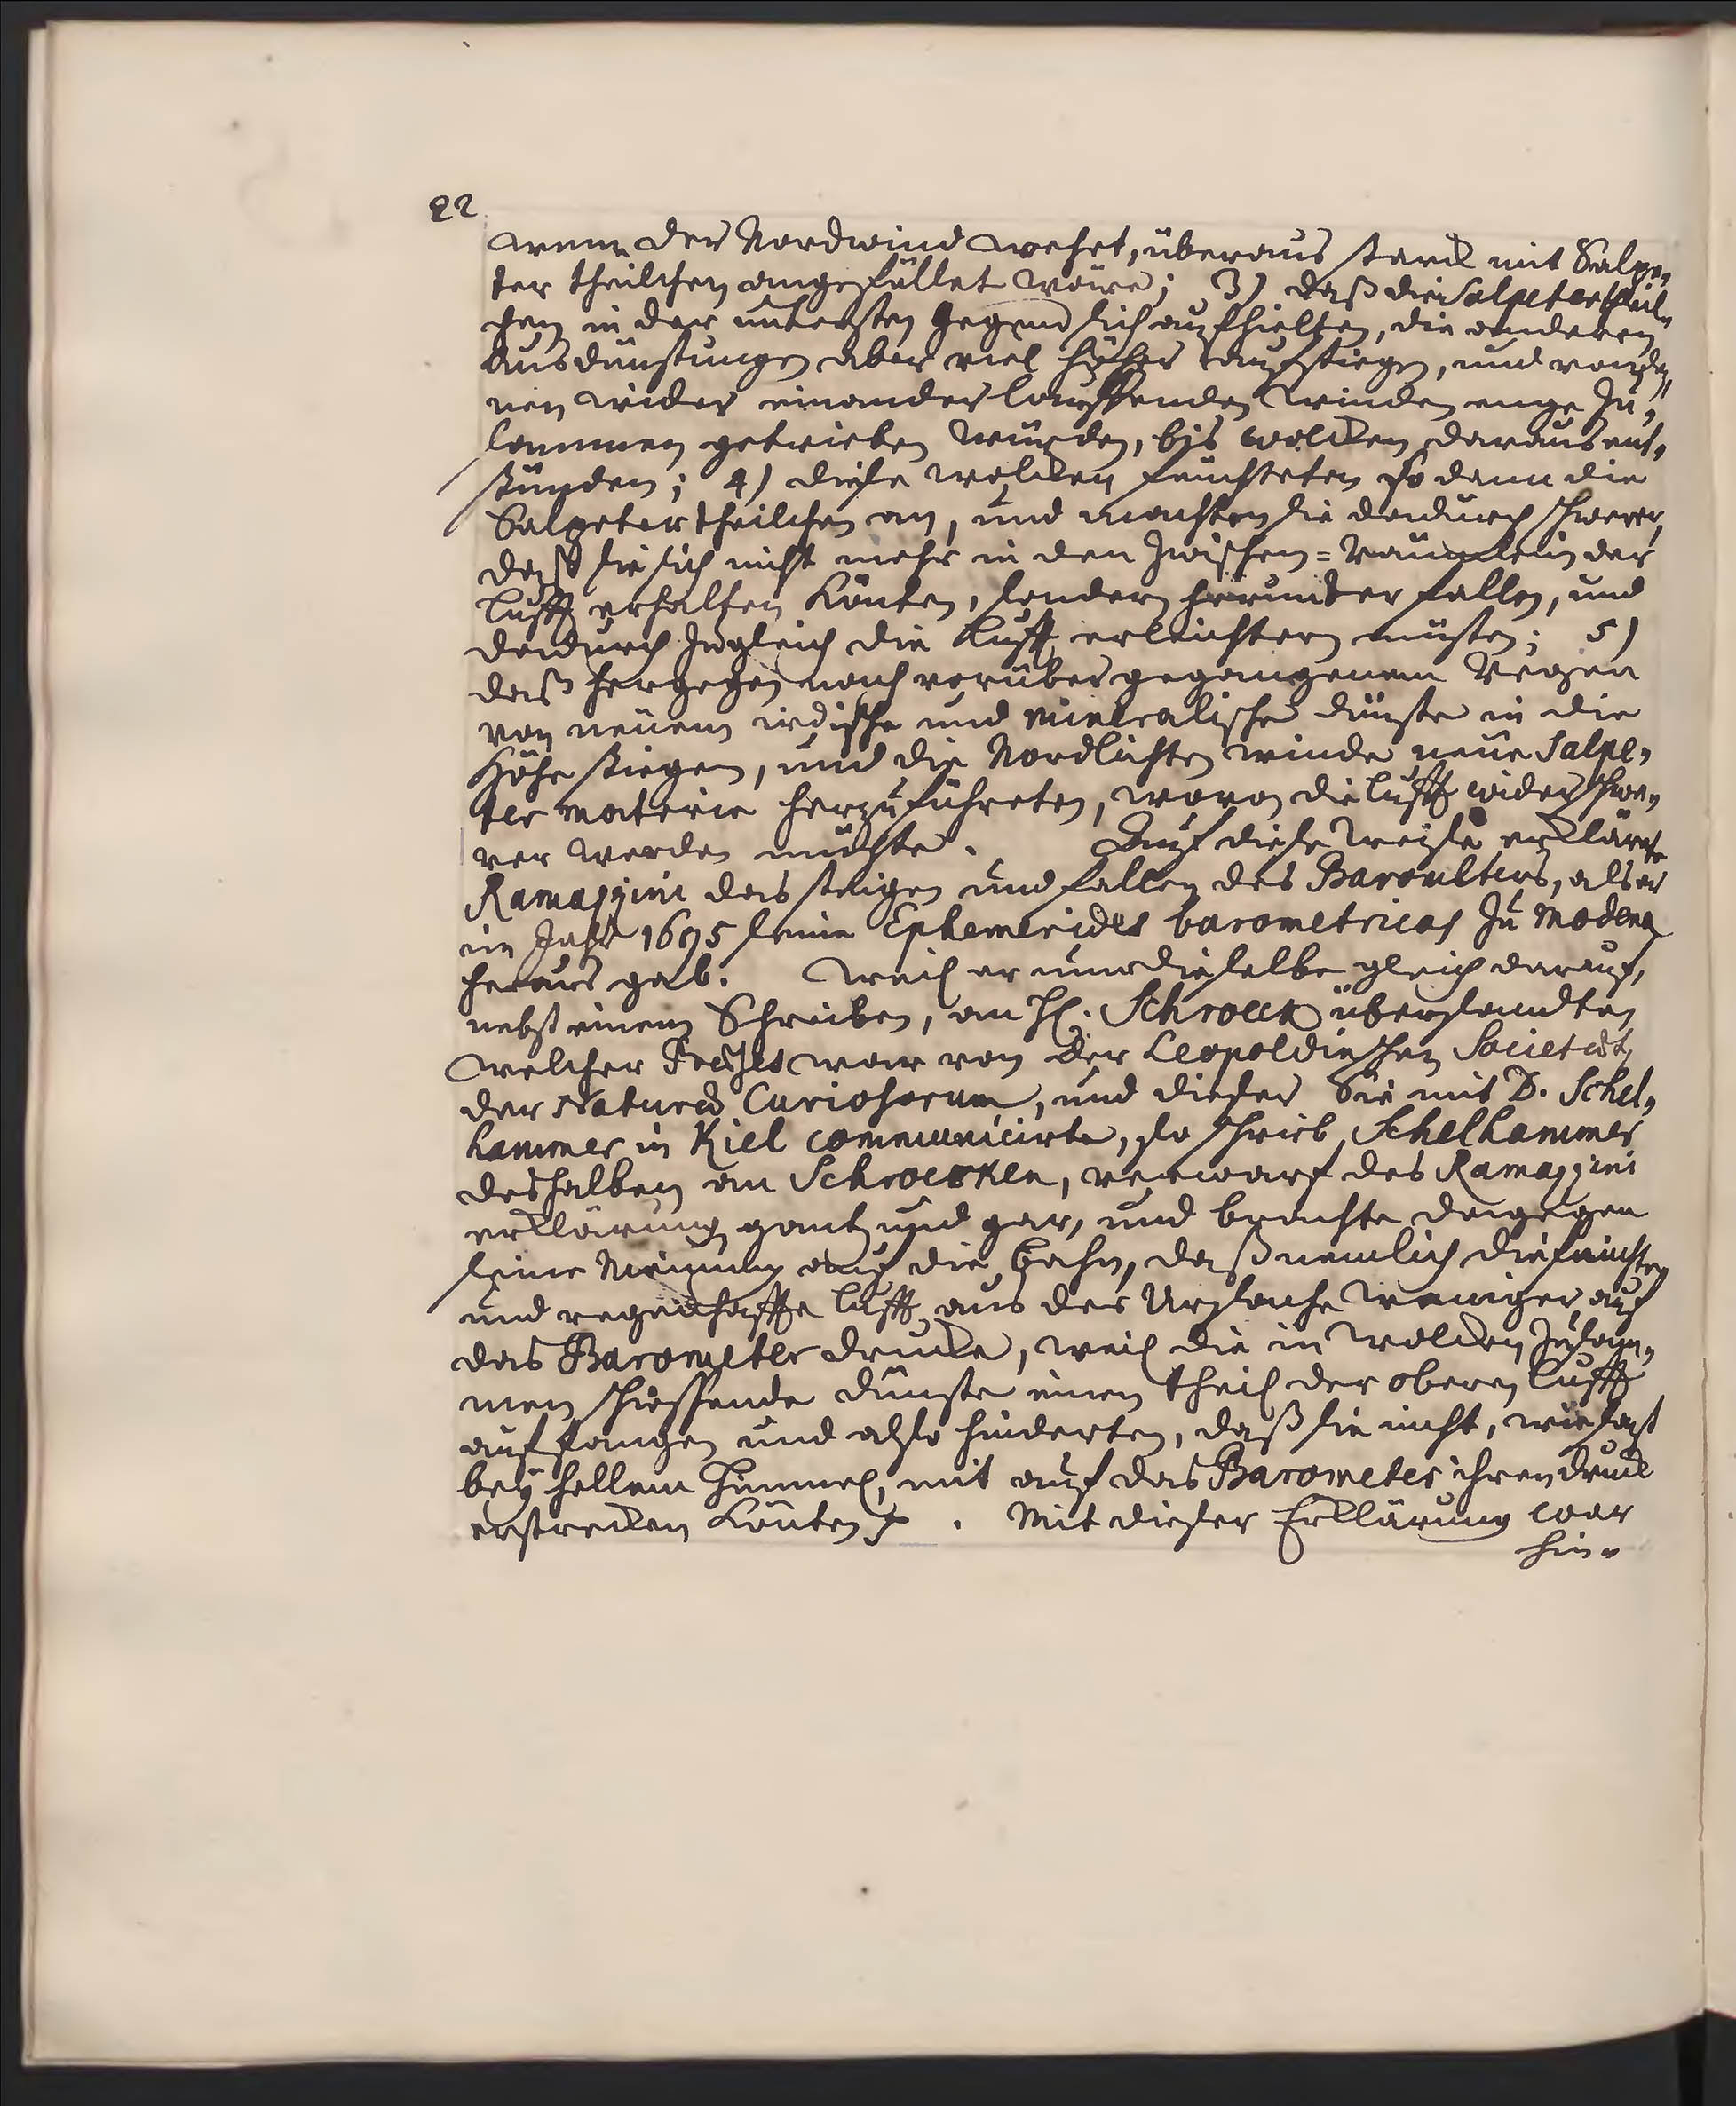 22
wenn der Nordwind wehet, überaus starck mit Salpe„
ter theilchen angefüllet wäre; 3) daß die Salpetertheil„
chen in der untersten Gegend sich aufhielten, die anderen
Ausdünstungen aber viel höher aufstiegen, und von de„
nen wider einander lauffenden Winden enge zu„
sammen getrieben würden, bis wolcken daraus ent„
stünden; 4) diese wolcken feuchteten so dann die
Salpetertheilchen an, und machten sie dadurch schwerer,
daß sie sich nicht mehr in den Zwischen=Räumlein der
Lufft erhalten könten, sondern herunter fallen, und
dadurch zugleich die Lufft erleichtern müsten; 5)
daß hergegen nach vorüber gegangenem Regen
von neuem irdische und mineralische dünste in die
Höhe stiegen, und die Nordlichten winde neue Salpe„
ter materie herzu führeten, wovon die Lufft wider schwe„
rer werden müste. Auf diese Weise erklärte
Ramazzini das steigen und fallen des Barometers, als er
im Jahr 1695 seine Ephemerides barometricas zu Modena
heraus gab. Weil er nun dieselbe gleich darauf,
nebst einem Schreiben, an H. Schroeck übersandte,
welcher Præses war von der Leopoldinschen Societæt
der Naturæ Curiosorum, und dieser Sie mit D. Schel„
hammer in Kiel communicirte, so schrieb Schelhammer
deshalben an Schroecken, verwarf des Ramazzini
erklärung gantz und gar, und brachte dagegen
seine Meinung auf die Bahn, daß nemlich die feuchte
und regenhaffte Lufft aus der Ursache weniger auf
das Barometer drucke, weil die in wolcken zusam„
men schiessende dünste einen theil der oberen Lufft
auffangen und also hinderten, daß sie nicht, wie sonst
bey hellem Himmel, mit auf das Barometer ihren druck
erstrecken könten. Mit dieser Erklärung war
hin„